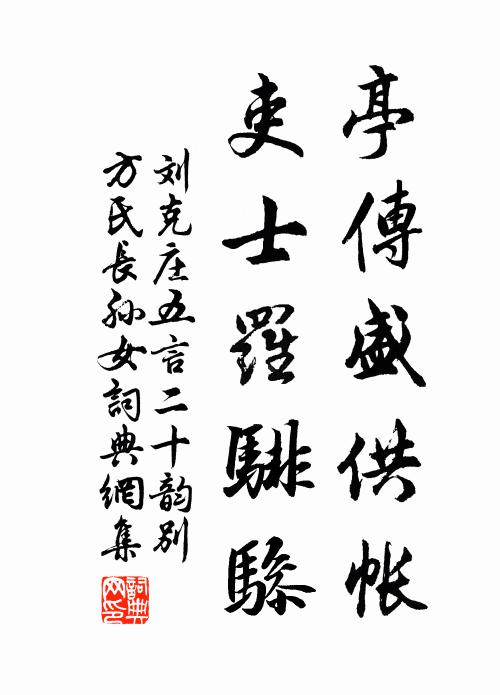 亭傳盛供帳
吏士羅騑驂
刘克庄五言二十韵别
方氏長孙女詞典網集
詞典網印